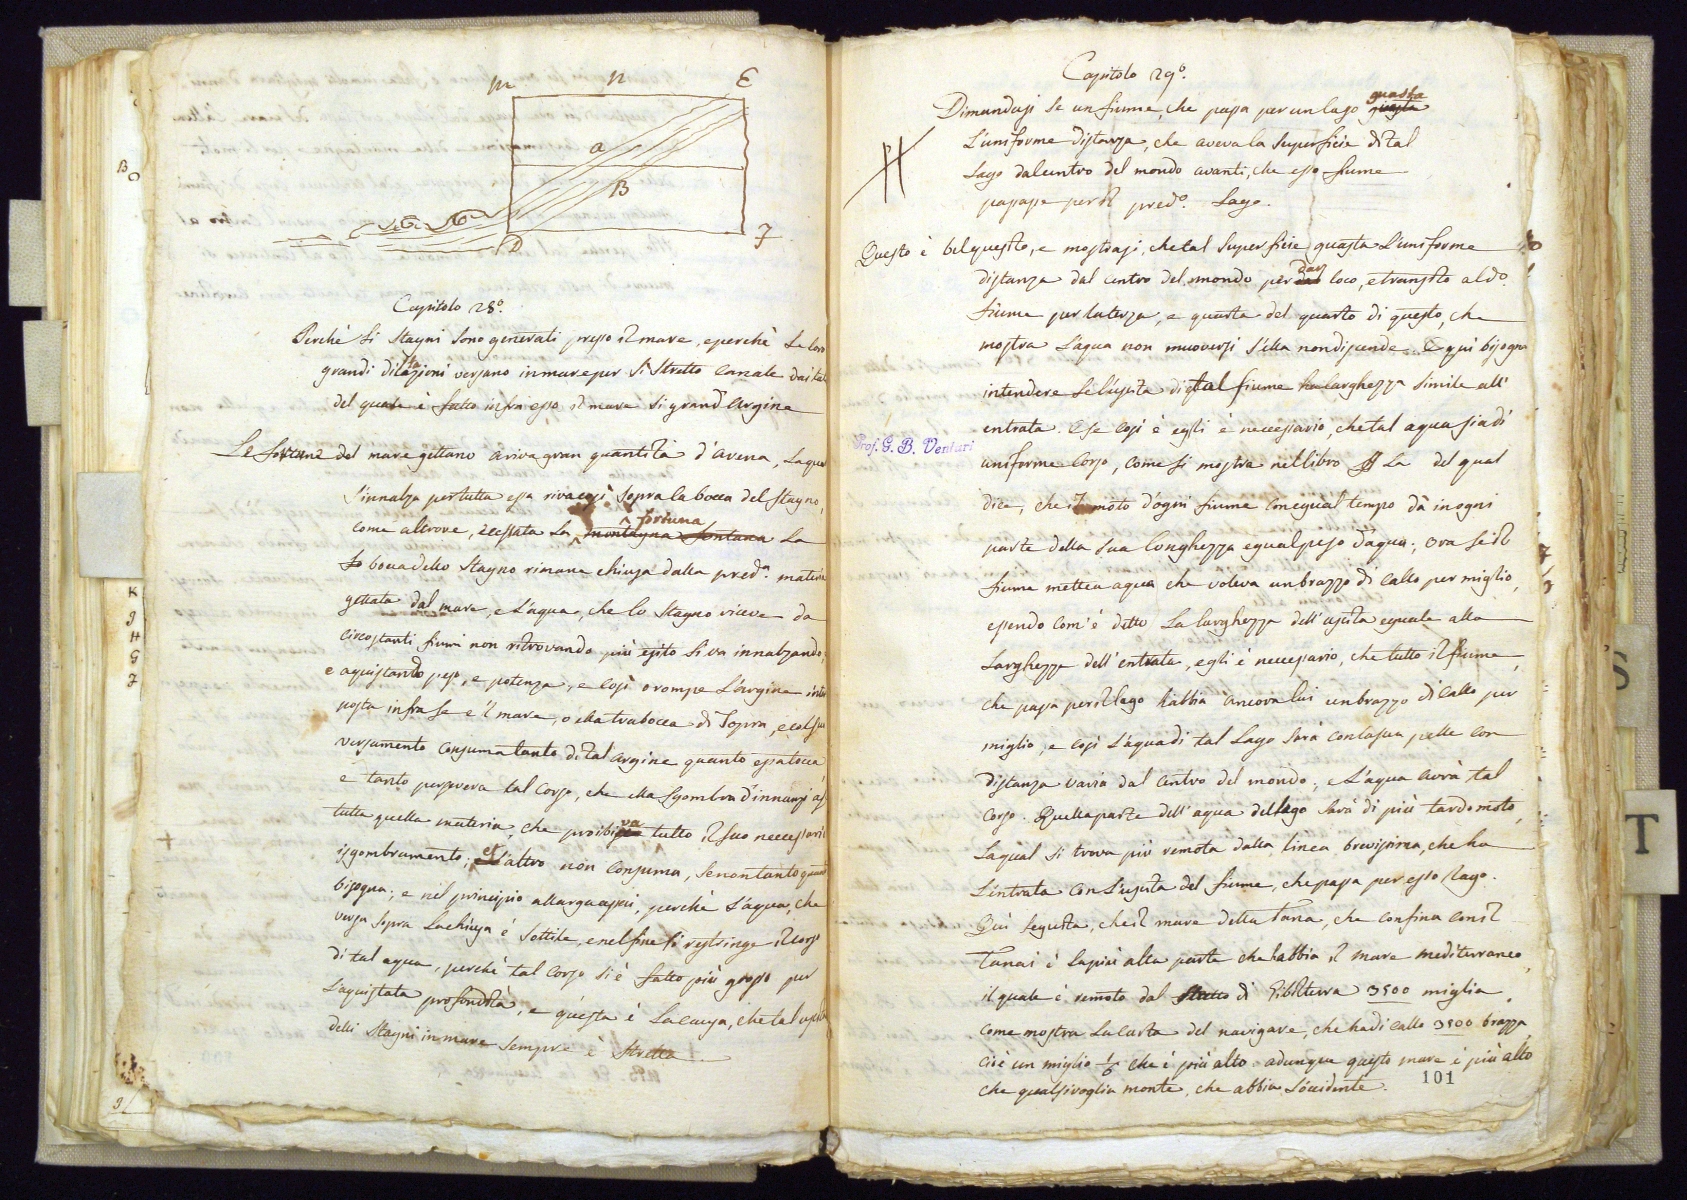 m n E
a
B
D F
Capitolo 28.º
Perchè li Stagni sono generati presso il mare, e perchè le loro
grandi dilatazioni versano in mare per sì stretto canale dai lati
del quale è fatto infra esso il mare sì grand' argine
Le fortune del mare gettano a riva gran quantità d'arena, la qual
s'innalza per tutta essa riva così sopra la bocca del stagno,
fortuna
come altrove, cessata la montagna fontana la
bocca dello stagno rimane chiusa dalla pred.ª materia
gettata dal mare, e l'aqua, che lo stagno riceve da
circostanti fiumi non ritrovando più esito si va innalzando,
e aquistando peso, e potenza, e così o rompe l'argine inter
posta infra se e 'l mare, o ella trabocca di sopra, e col suo
versamento consuma tanto di tal argine quanto essa tocca
e tanto persevera tal corso, che ella sgombra d'innanzi a se
va
tutta quella materia, che proibi tutto il suo necessario
isgombramento; e l'altro non consuma, se non tanto quanto
bisogna; e nel principio allarga assai, perchè l'aqua, che
versa sopra la chiusa è sottile, e nel fine si restringe il corso
di tal aqua, perchè tal corso si è fatto più grosso per
l'aquistata profondità, e questa è la causa, che tal uscita
delli stagni in mare sempre è stretta.
Capitolo 29.º
guasta
Dimandasi se un fiume, che passa per un lago guasta
l'uniforme distanza, che aveva la superficie di tal
lago dal centro del mondo avanti, che esso fiume
passasse per il pred.º lago.
Questo è bel quesito, e mostrasi, che tal superficie guasta l'uniforme
dar
distanza dal centro del mondo per loco, e transito al d.º
fiume per la terza, e quarta del quarto di questo, che
mostra l'aqua non muoversi s'ella non discende. E qui bisogna
intendere se l'uscita di tal fiume ha larghezza simile all'
entrata. E se così è egli è necessario, che tal aqua sia di
Prof. G. B. Venturi
uniforme corso, come si mostra nel libro La del qual
dice, che il moto d'ogni fiume con equal tempo dà in ogni
parte della sua longhezza equal peso d'aqua; ora se il
fiume mettea aqua che voleva un brazzo di callo per miglio,
essendo com'è detto la larghezza dell'uscita equale alla
larghezza dell'entrata, egli è necessario, che tutto il fiume,
che passa per il lago habbia ancora lui un brazzo di callo per
miglio, e così l'aqua di tal lago sarà con la sua pelle con
distanza varia dal centro del mondo, e l'aqua avrà tal
corso. Quella parte dell'aqua del lago sarà di più tardo moto,
la qual si trova più remota dalla linea brevissima, che ha
l'entrata con l'uscita del fiume, che passa per esso lago.
Qui seguita, che il mare della Tana, che confina con il
Tanai è la più alta parte che habbia il mare mediterraneo,
il quale è remoto dal Stretto di Gibilterra 3500 miglia,
come mostra la carta del navigare, che ha di callo 3500 brazza,
cioè un miglio 1/6 che è più alto adunque questo mare è più alto
che qualsivoglia monte, che abbia l'occidente.
101
K
I
H
G
F
S
T